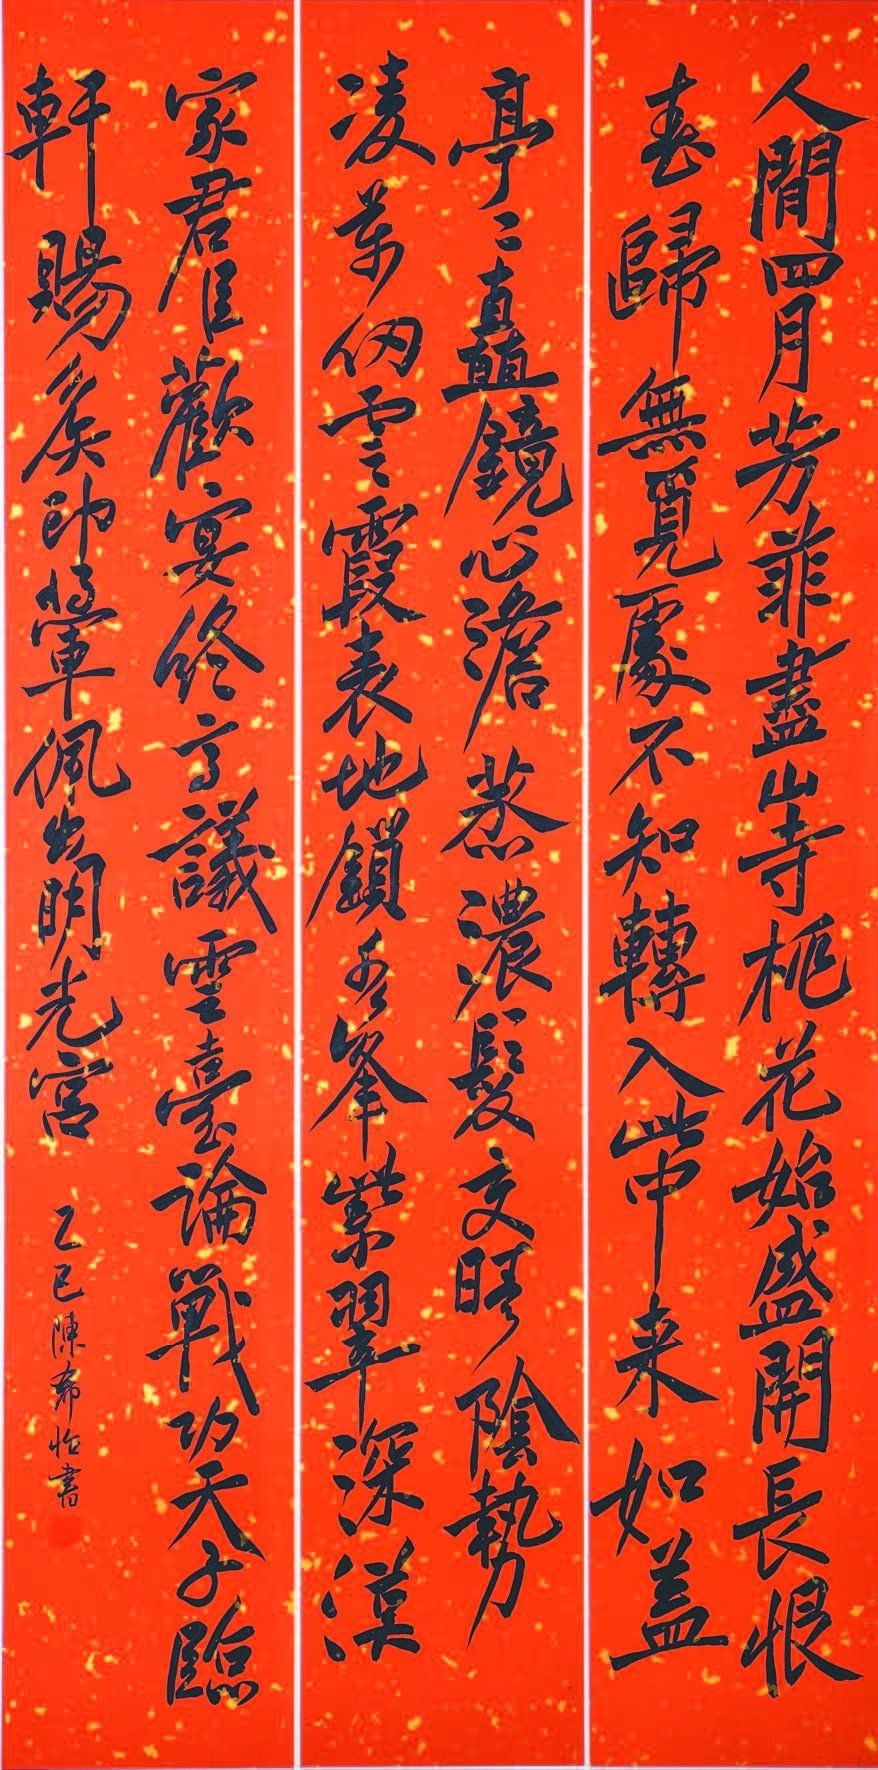 人間四月芳菲盡山寺桃花始盛開長恨
春歸無覓處不知轉入此中来如蓋
亭〻矗鏡心澹蒸濃髮交晴陰勢
凌萬仞雲霞表地鎖峯紫翠深漢
家君臣歡宴終高議雲臺論戰功天子臨
軒賜矦印將軍佩出明光宮
乙巳陳希怡書